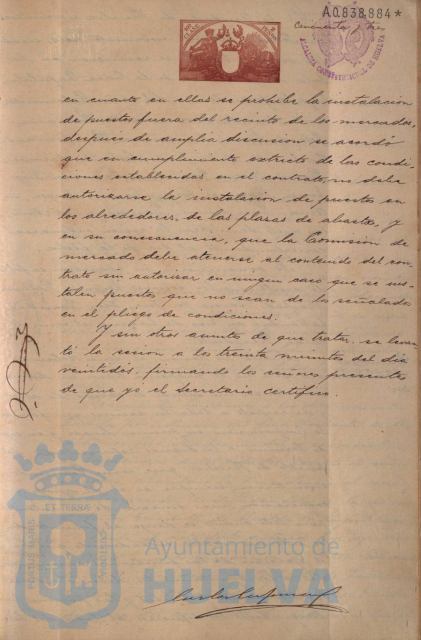 A0.838,884*
Cincuenta y tres
ALCALDIA CONSTITUCIONAL DE HUELVA
en cuanto en ellas se prohibe la instalacion
de puestos fuera del recinto de los mercados,
despues de amplia discusion se acordó
que en cumplimiento extricto de las condi-
ciones establecidas en el contrato, no debe
autorizarse la instalacion de puestos en
los alrededores de las plazas de abasto, y
en su consecuencia, que la Comision de
mercado debe atenerse al contenido del con-
trato sin autorizar en ningun caso que se ins-
talen puestos que no sean de los señalados
en el pliego de condiciones.
Y sin otros asuntos de que tratar, se levan
tó la sesion a los treinta minutos del dia
veintidos, firmando los señores presentes
de que yo el Secretario certifico.
ET TERRÆ
PORTUS MARIS
CUSTODIA
Ayuntamiento de
HUELVA